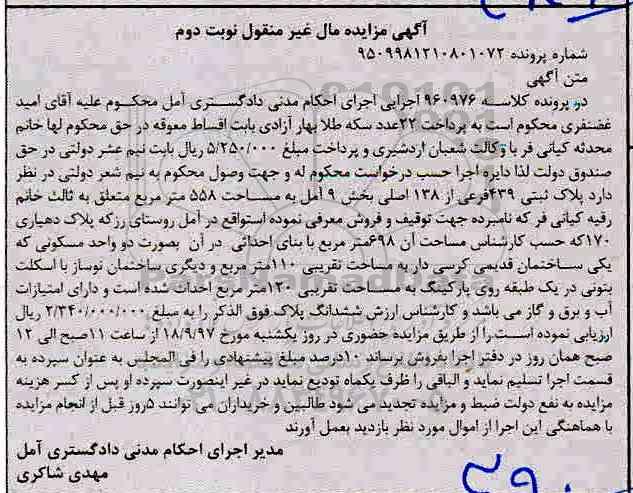 آگهی مزایده مال غیر منقول نوبت دوم
شماره پرونده ۹۵۰۹۹۸۱۲۱۰۸۰۱۰۷۲
متن آگهی
در پرونده کلاسه ۹۶۰۹۷۶ اجرایی اجرای احکام مدنی دادگستری آمل محکوم علیه آقای امید
غضنفری محکوم است به پرداخت ۲۲عدد سکه طلا بهار آزادی بابت اقساط معوقه در حق محکوم لها خانم
محدثه کیانی فر با وکالت شعبان اردشیری و پرداخت مبلغ ۵/۲۵۰/۰۰۰ ریال بابت نیم عشر دولتی در حق
صندوق دولت لذا دایره اجرا حسب درخواست محکوم له و جهت وصول محکوم به نیم شعر دولتی در نظر
دارد پلاک ثبتی ۴۳۹فرعی از ۱۳۸ اصلی بخش ۹ آمل به مساحت ۵۵۸ متر مربع متعلق به ثالث خانم
رقیه کیانی فر که نامبرده جهت توقیف و فروش معرفی نموده استواقع در آمل روستای رزکه پلاک دهیاری
۱۷۰که حسب کارشناس مساحت آن ۶۹۸متر مربع با بنای احداثی در آن بصورت دو واحد مسکونی که
یکی ساختمان قدیمی کرسی دار به مساحت تقریبی ۱۱۰متر مربع و دیگری ساختمان نوساز با اسکلت
بتونی در یک طبقه روی پارکینگ به مساحت تقریبی ۱۲۰متر مربع احداث شده است و دارای امتیازات
آب و برق و گاز می باشد و کارشناس ارزش ششدانگ پلاک فوق الذکر را به مبلغ ۲/۳۴۰/۰۰۰/۰۰۰ ریال
ارزیابی نموده است.را از طریق مزایده حضوری در روز یکشنبه مورخ ۱۸/۹/۹۷ از ساعت ۱۱صبح الی ۱۲
صبح همان روز در دفتر اجرا بفروش برساند ۱۰درصد مبلغ پیشنهادی را فی المجلس به عنوان سپرده به
قسمت اجرا تسلیم نماید و الباقی را ظرف یکماه تودیع نماید در غیر اینصورت سپرده او پس از کسر هزینه
مزایده به نفع دولت ضبط و مزایده تجدید می شود طالبین و خریداران می توانند ۵روز قبل از انجام مزایده
با هماهنگی این اجرا از اموال مورد نظر بازدید بعمل آورند
مدیر اجرای احکام مدنی دادگستری آمل
مهدی شاکری